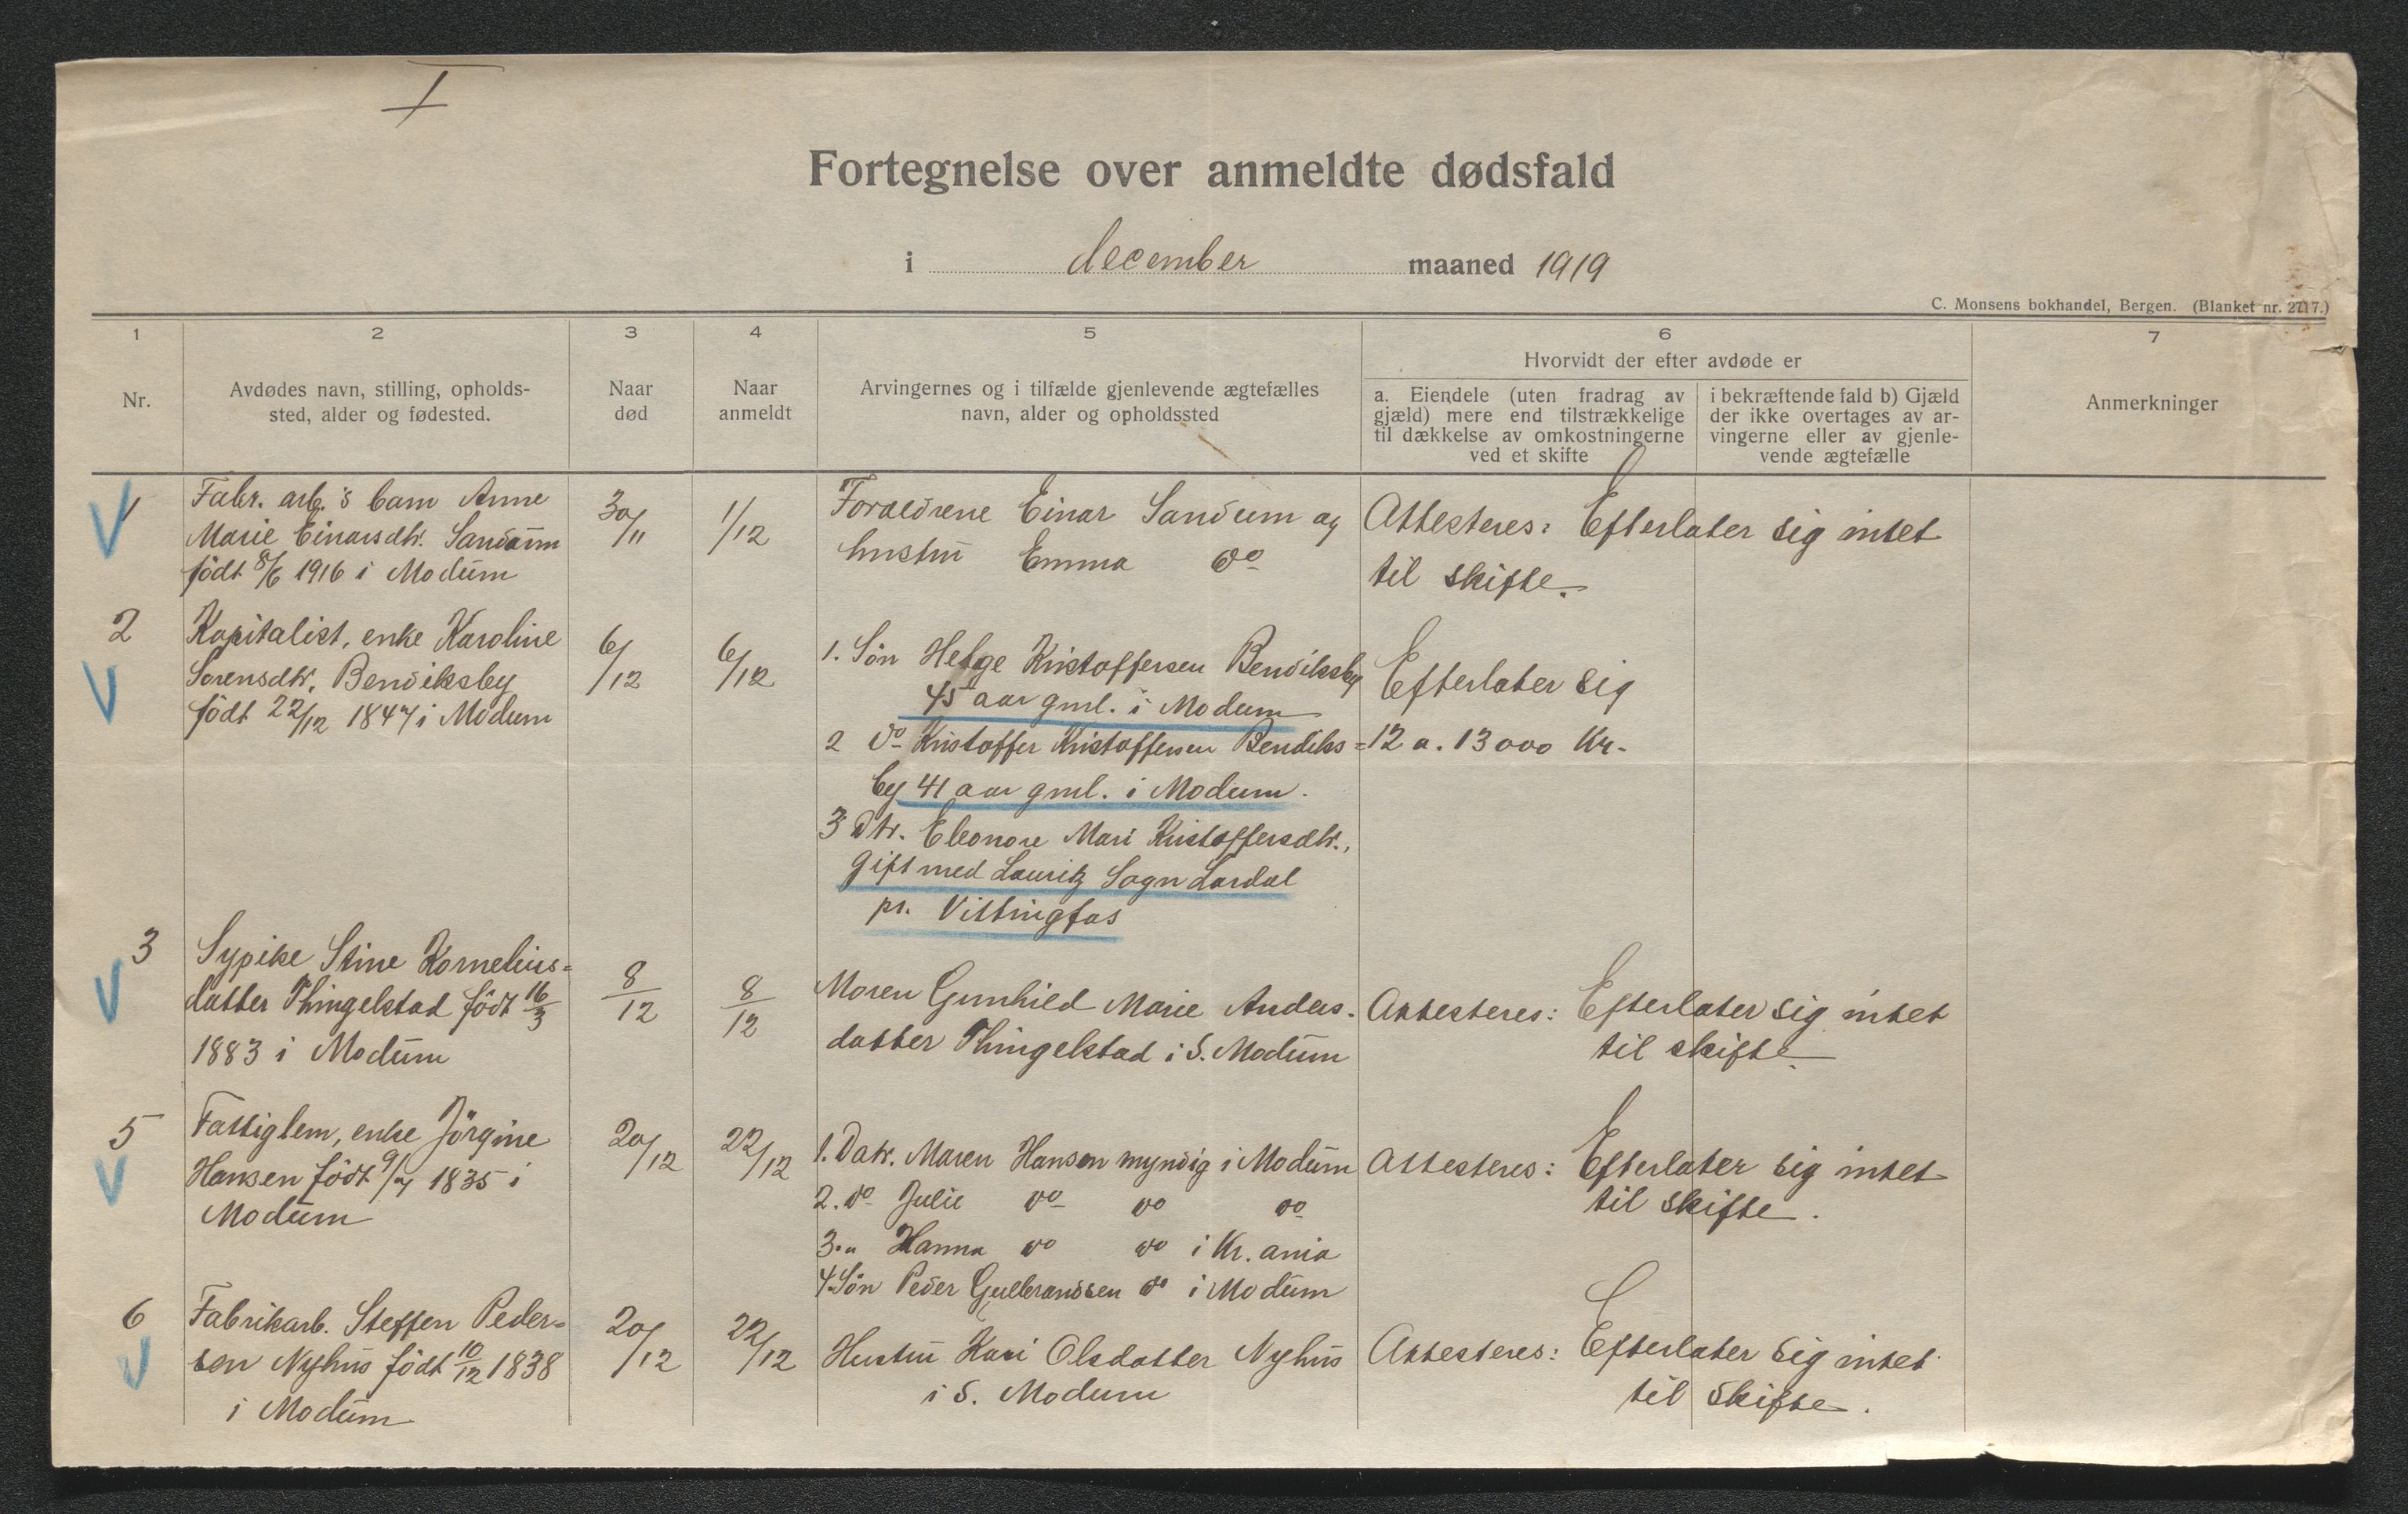 I
Fortegnelse over anmeldte dødsfald
i december maaned 1919
C. Monsens bokhandel, Bergen. (Blanket nr. 2717.)
1 2 3 4 5 6 7
Hvorvidt der efter avdøde er
Nr.
Avdødes navn, stilling, opholds-
sted, alder og fødested.
Naar
død
Naar
anmeldt
Arvingernes og i tilfælde gjenlevende ægtefælles
navn, alder og opholdssted
a. Eiendele (uten fradrag av
gjæld) mere end tilstrækkelige
til dækkelse av omkostningerne
ved et skifte
i bekræftende fald b) Gjæld
der ikke overtages av ar-
vingerne eller av gjenle-
vende ægtefælle
Anmerkninger
1
Fabr. arb.'s barn Anne
Marie Einarsdtr. Sandum
født 8/6 1916 i Modum
30/11
1/12
Forældrene Einar Sandum og
hustru Emma do
Attesteres: Efterlater sig intet
til skifte.
2
Kapitalist, enke Karoline
Sorensdtr. Bendiksby
født 22/12 1847 i Modum
6/12
6/12
1. Søn Helge Kristoffersen Bendiksby
45 aar gml. i Modum
2 do Kristoffer Kristoffersen Bendiks=
by 41 aar gml. i Modum.
3 Dtr. Eleonore Mari Kristoffersdtr.,
gift med Lauritz Sogn Lardal
pr. Vittingfos
Efterlater sig
12 a. 13000 Kr.
3
Sypike Stine Kornelius=
datter Thingelstad født 16/3
1883 i Modum
8/12
8/12
Moren Gunhild Marie Anders.
datter Thingelstad i S. Modum
Attesteres: Efterlater sig intet
til skifte.
5
Fattiglem, enke Jörgine
Hansen født 9/7 1835 i
Modum
20/12
22/12
1. Datr. Maren Hansen myndig i Modum
2. do Julie do do do
3. " Hanna do do i Kr.ania
4. Søn Peder Gulbrandsen do i Modum
Attesteres: Efterlater sig intet
til skifte.
6
Fabrikarb. Steffen Peder=
sen Nyhus født 10/12 1838
i Modum
20/12
22/12
Hustru Kari Olsdatter Nyhus
i S. Modum
Attesteres: Efterlater sig intet
til skifte.